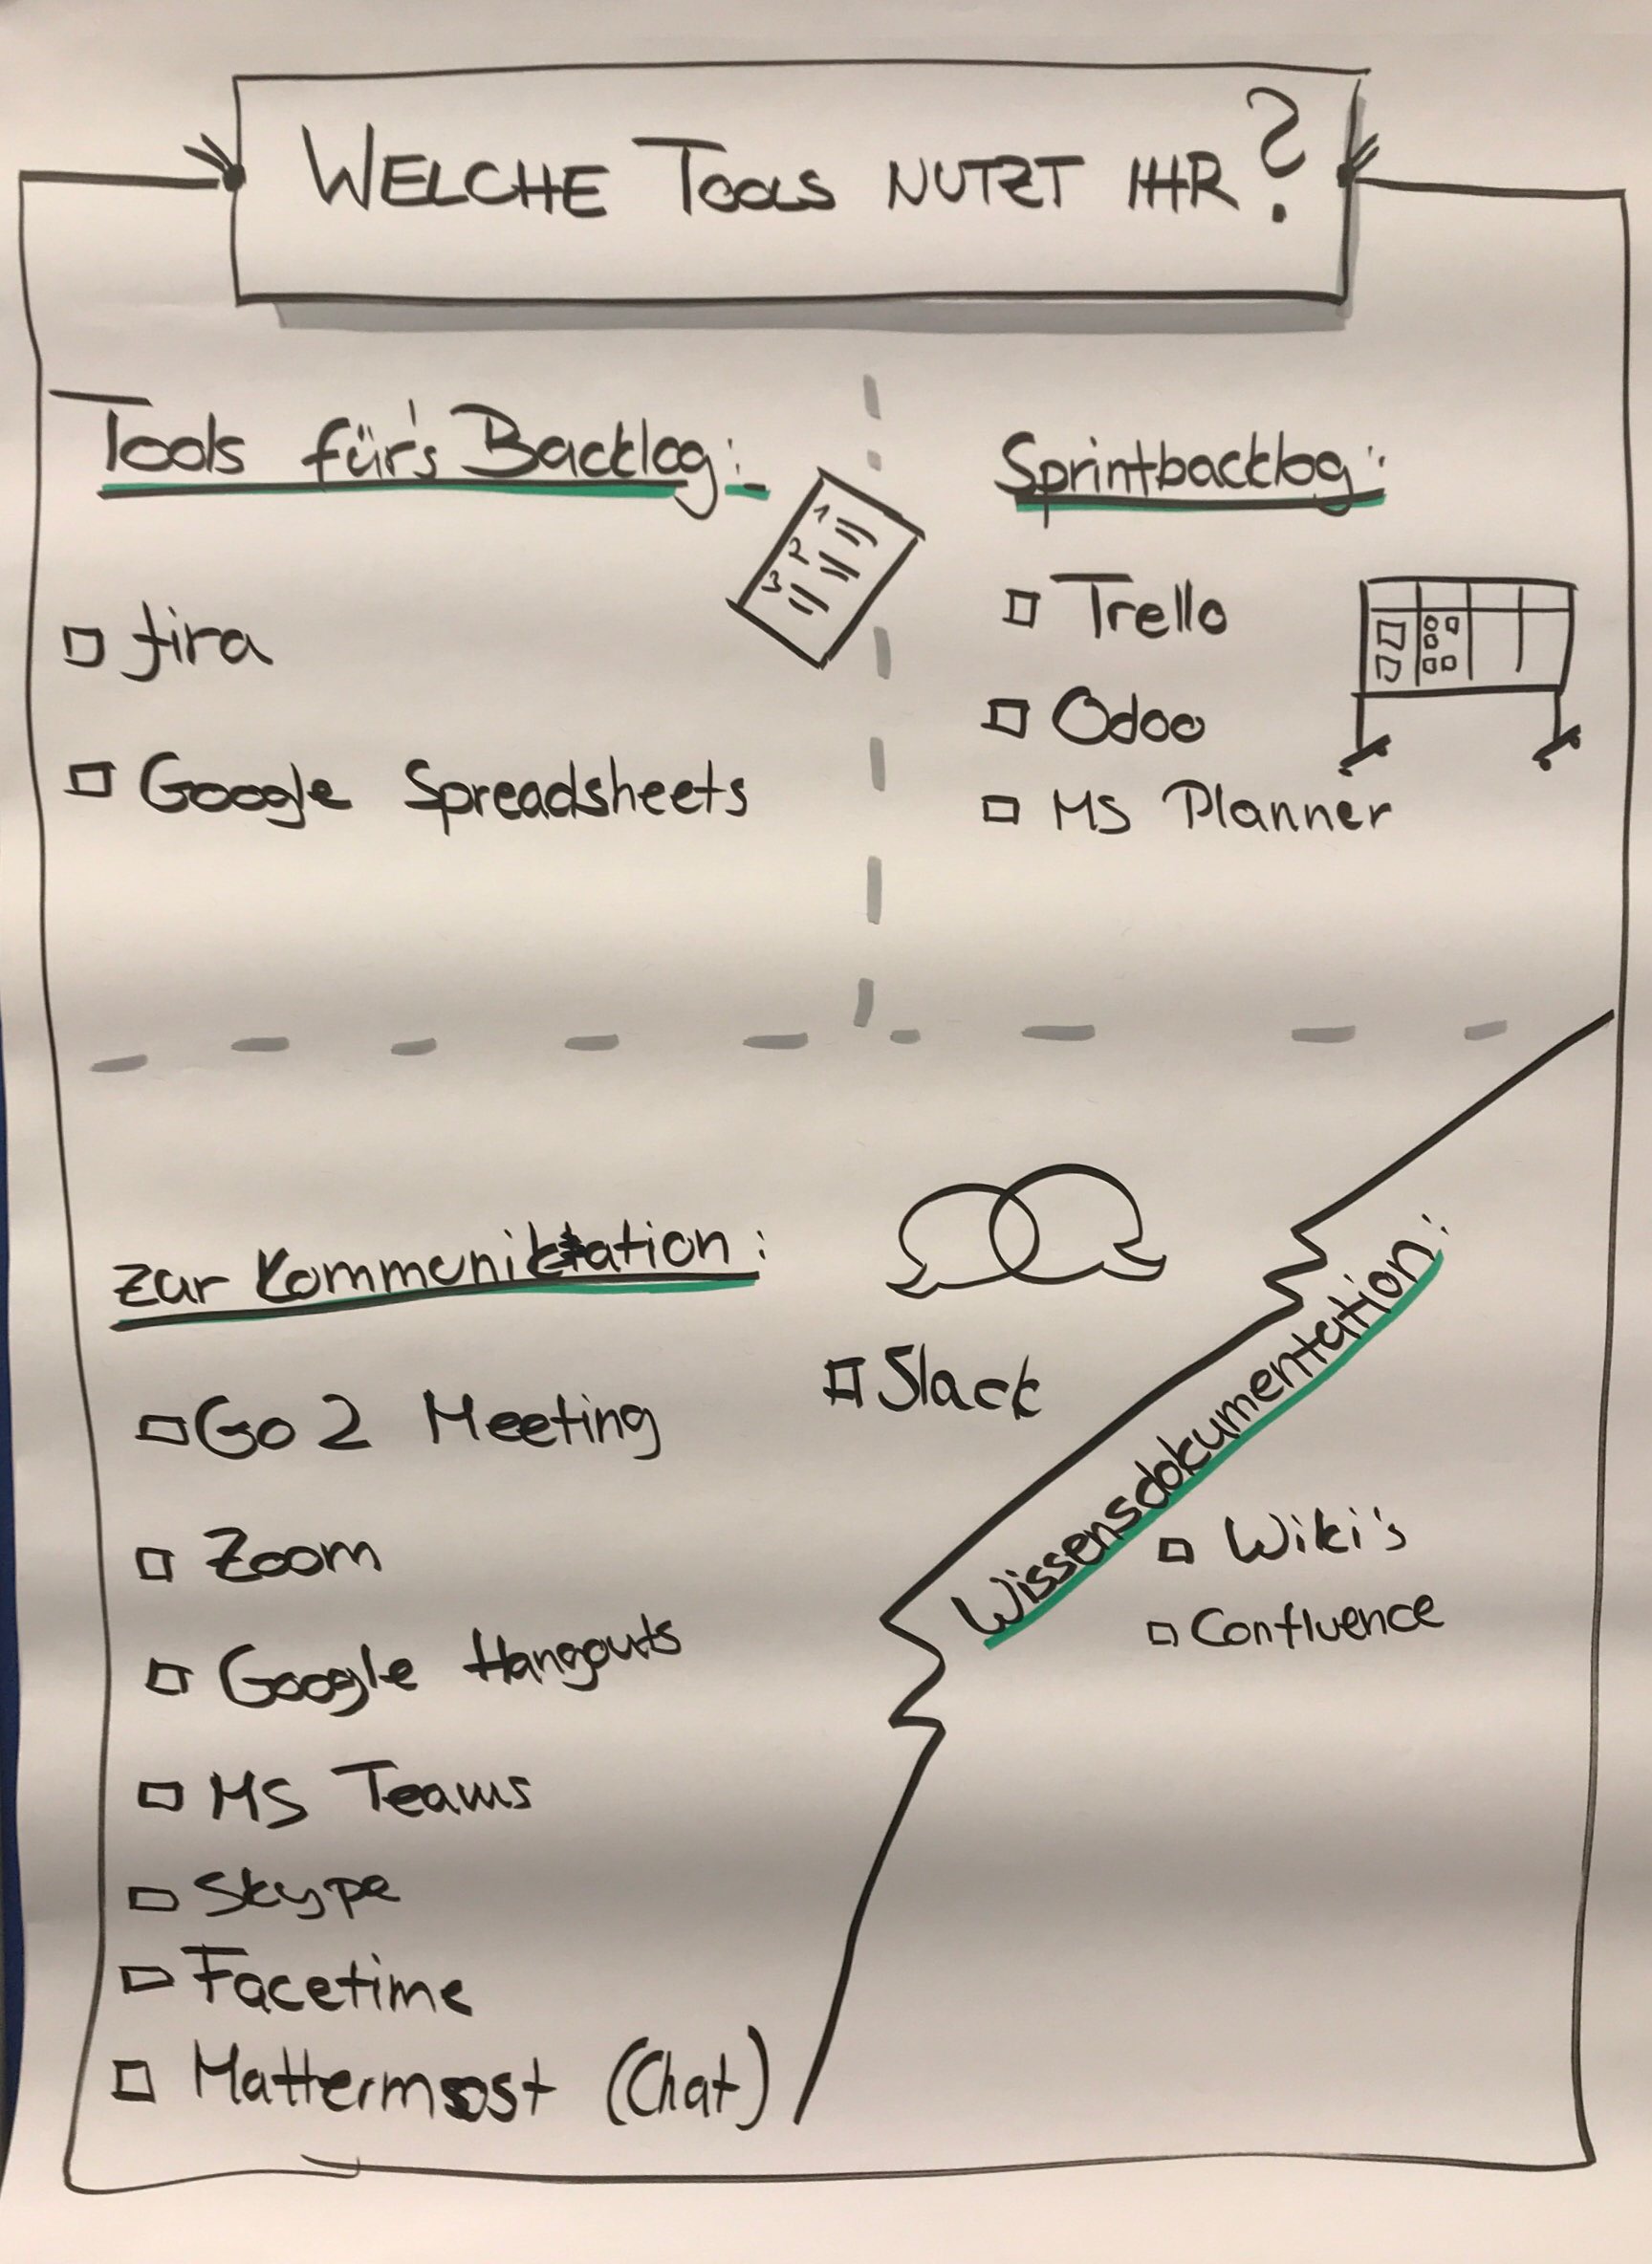 WELCHE TOOLS NUTZT IHR?
Tools für's Backlog:
1
2
3
Jira
Google Spreadsheets
Sprintbacklog:
Trello
Odoo
MS Planner
zur Kommunikation:
Go 2 Meeting
Zoom
Google Hangouts
MS Teams
Skype
Facetime
Mattermost (Chat)
Slack
Wissensdokumentation:
Wiki's
Confluence